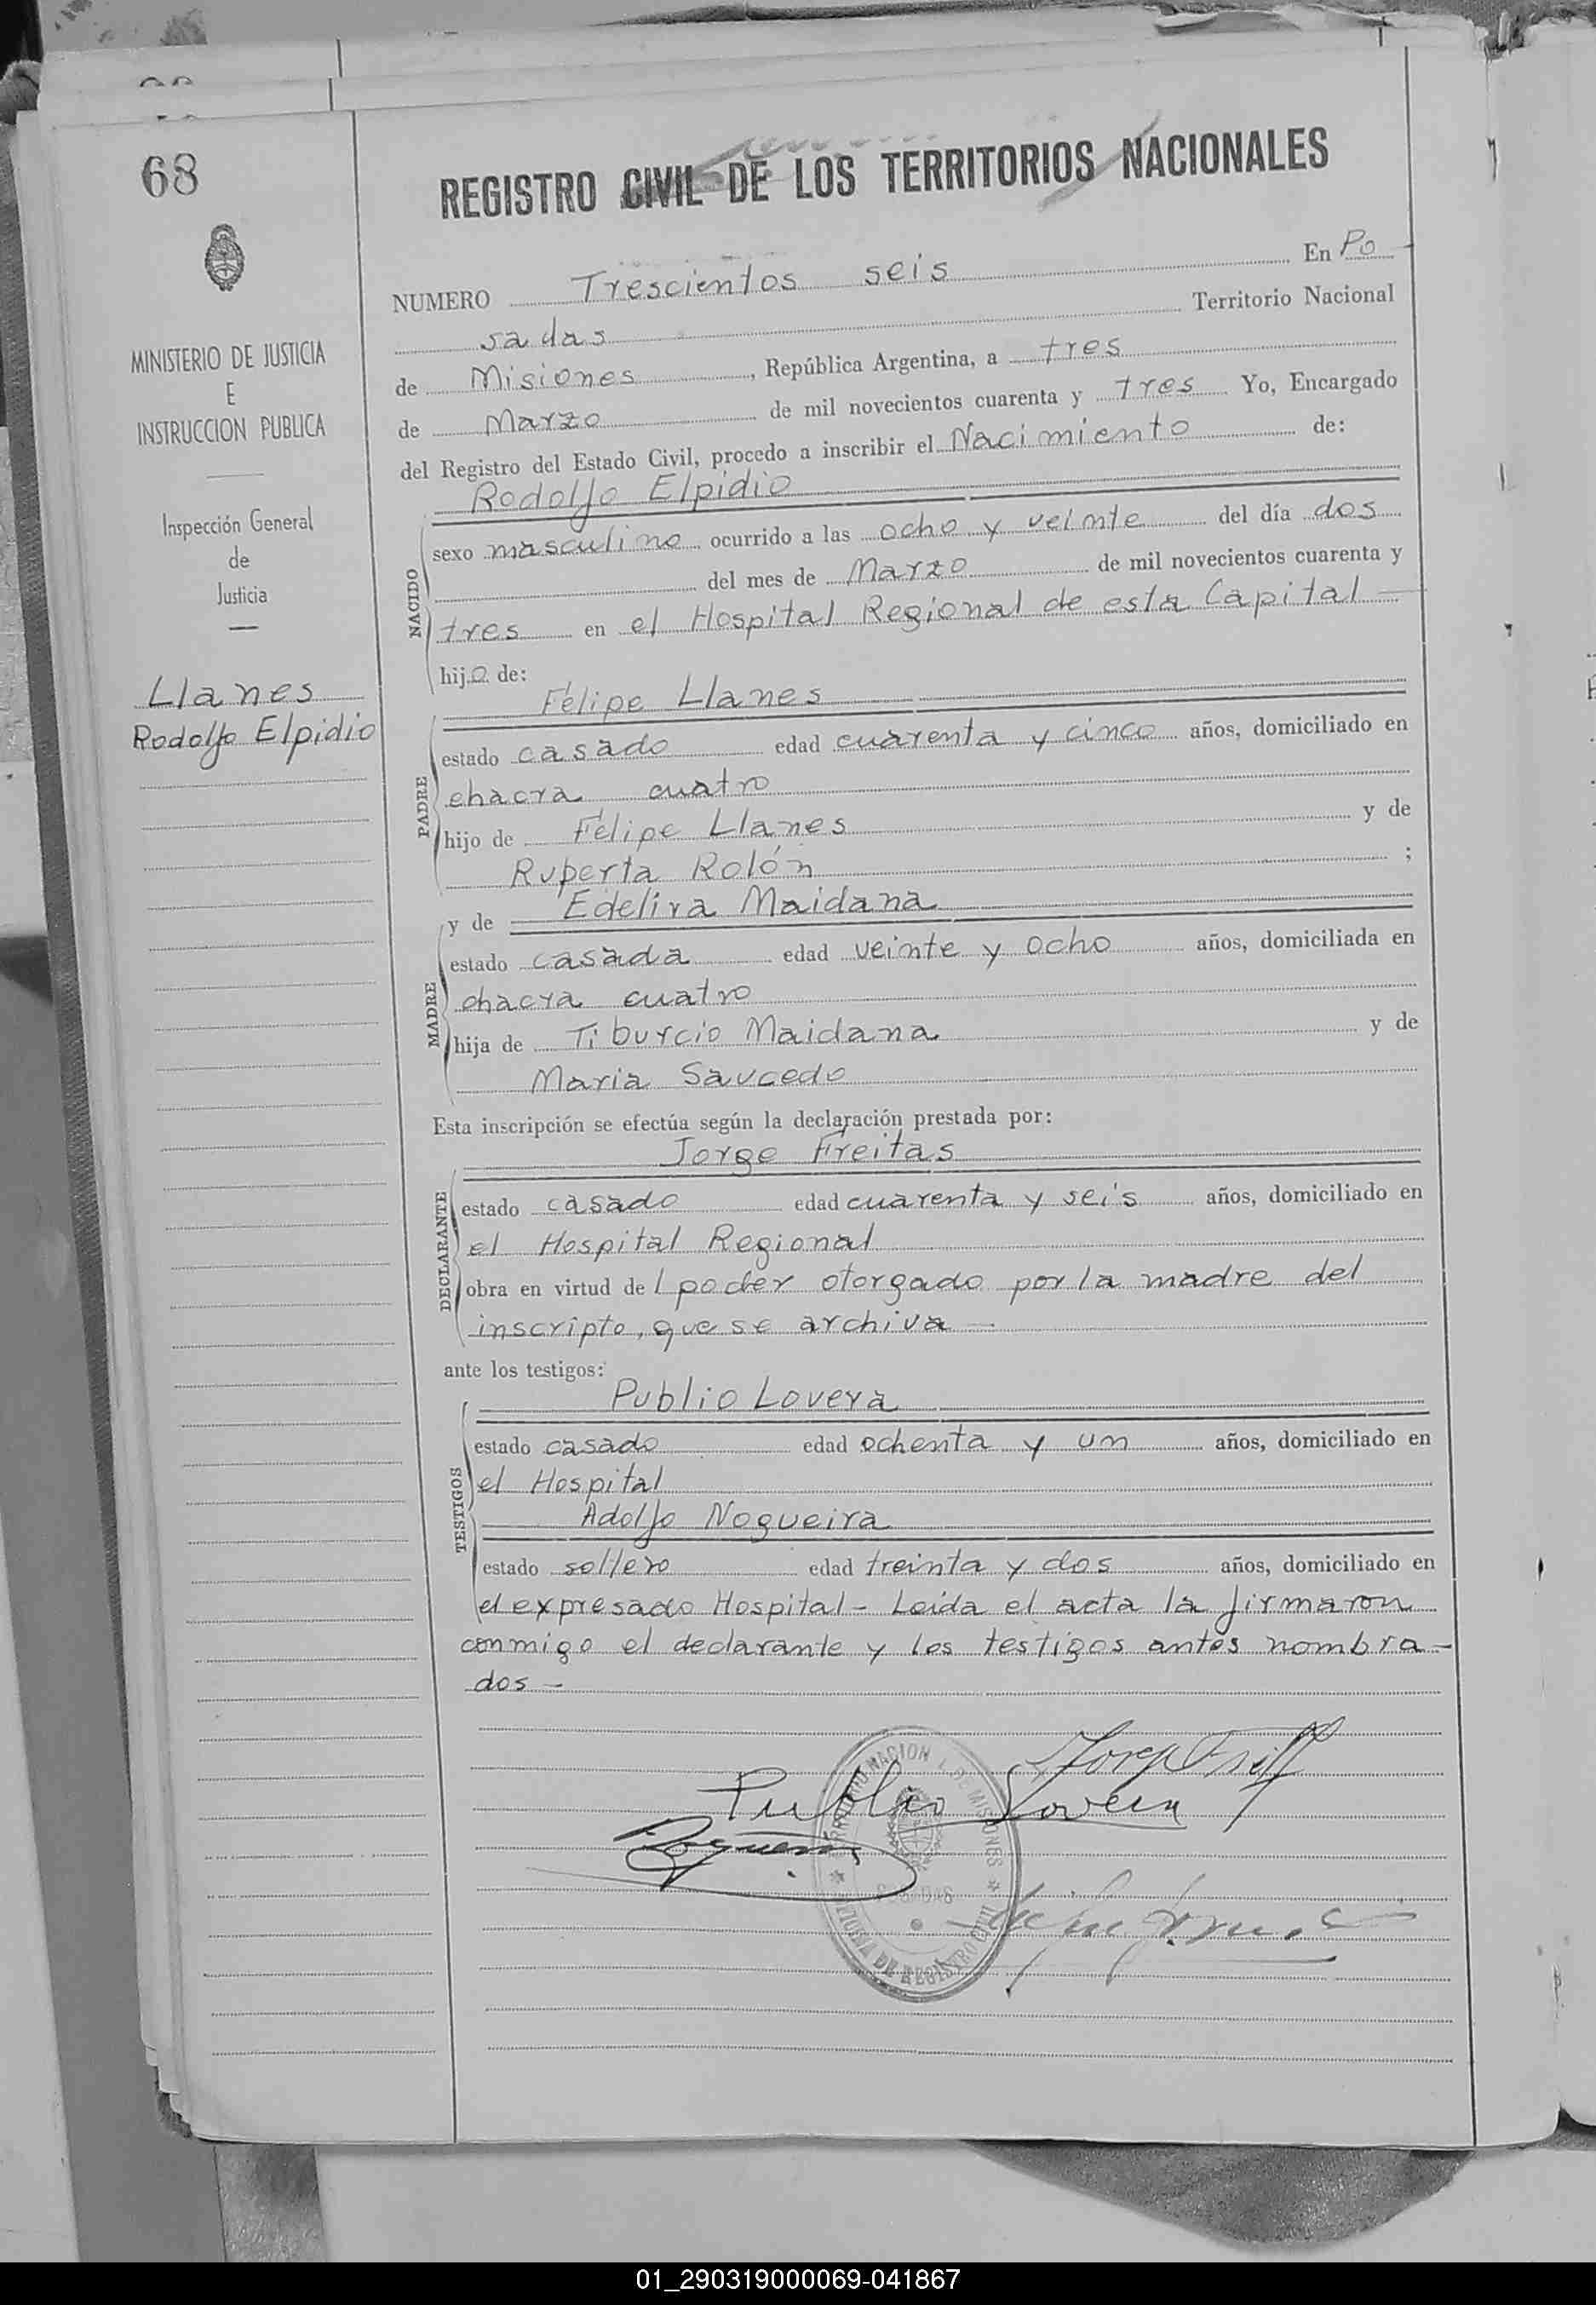 68
REGISTRO CIVIL DE LOS TERRITORIOS NACIONALES
MINISTERIO DE JUSTICIA
E
INSTRUCCION PUBLICA
Inspección General
de
Justicia
Llanes
Rodolfo Elpidio
NUMERO Trescientos seis En Po
sadas Territorio Nacional
de Misiones, República Argentina, a tres
de Marzo de mil novecientos cuarenta y tres Yo, Encargado
del Registro del Estado Civil, procedo a inscribir el Nacimiento de:
Rodolfo Elpidio
NACIDO
sexo masculino ocurrido a las ocho y veinte del día dos
del mes de Marzo de mil novecientos cuarenta y
tres en el Hospital Regional de esta Capital —
hijo de:
Felipe Llanes
PADRE
estado casado edad cuarenta y cinco años, domiciliado en
chacra cuatro
hijo de Felipe Llanes y de
Ruperta Rolón ;
y de Edelira Maidana
MADRE
estado casada edad veinte y ocho años, domiciliada en
chacra cuatro
hija de Tiburcio Maidana y de
Maria Saucedo
Esta inscripción se efectúa según la declaración prestada por:
Jorge Freitas
DECLARANTE
estado casado edad cuarenta y seis años, domiciliado en
el Hospital Regional
obra en virtud de l poder otorgado por la madre del
inscripto, que se archiva —
ante los testigos:
Publio Lovera
TESTIGOS
estado casado edad ochenta y un años, domiciliado en
el Hospital
Adolfo Nogueira
estado soltero edad treinta y dos años, domiciliado en
el expresado Hospital - Leida el acta la firmaron
conmigo el declarante y los testigos antes nombra-
dos -
Publio Lovera
POSADAS
01_290319000069-041867